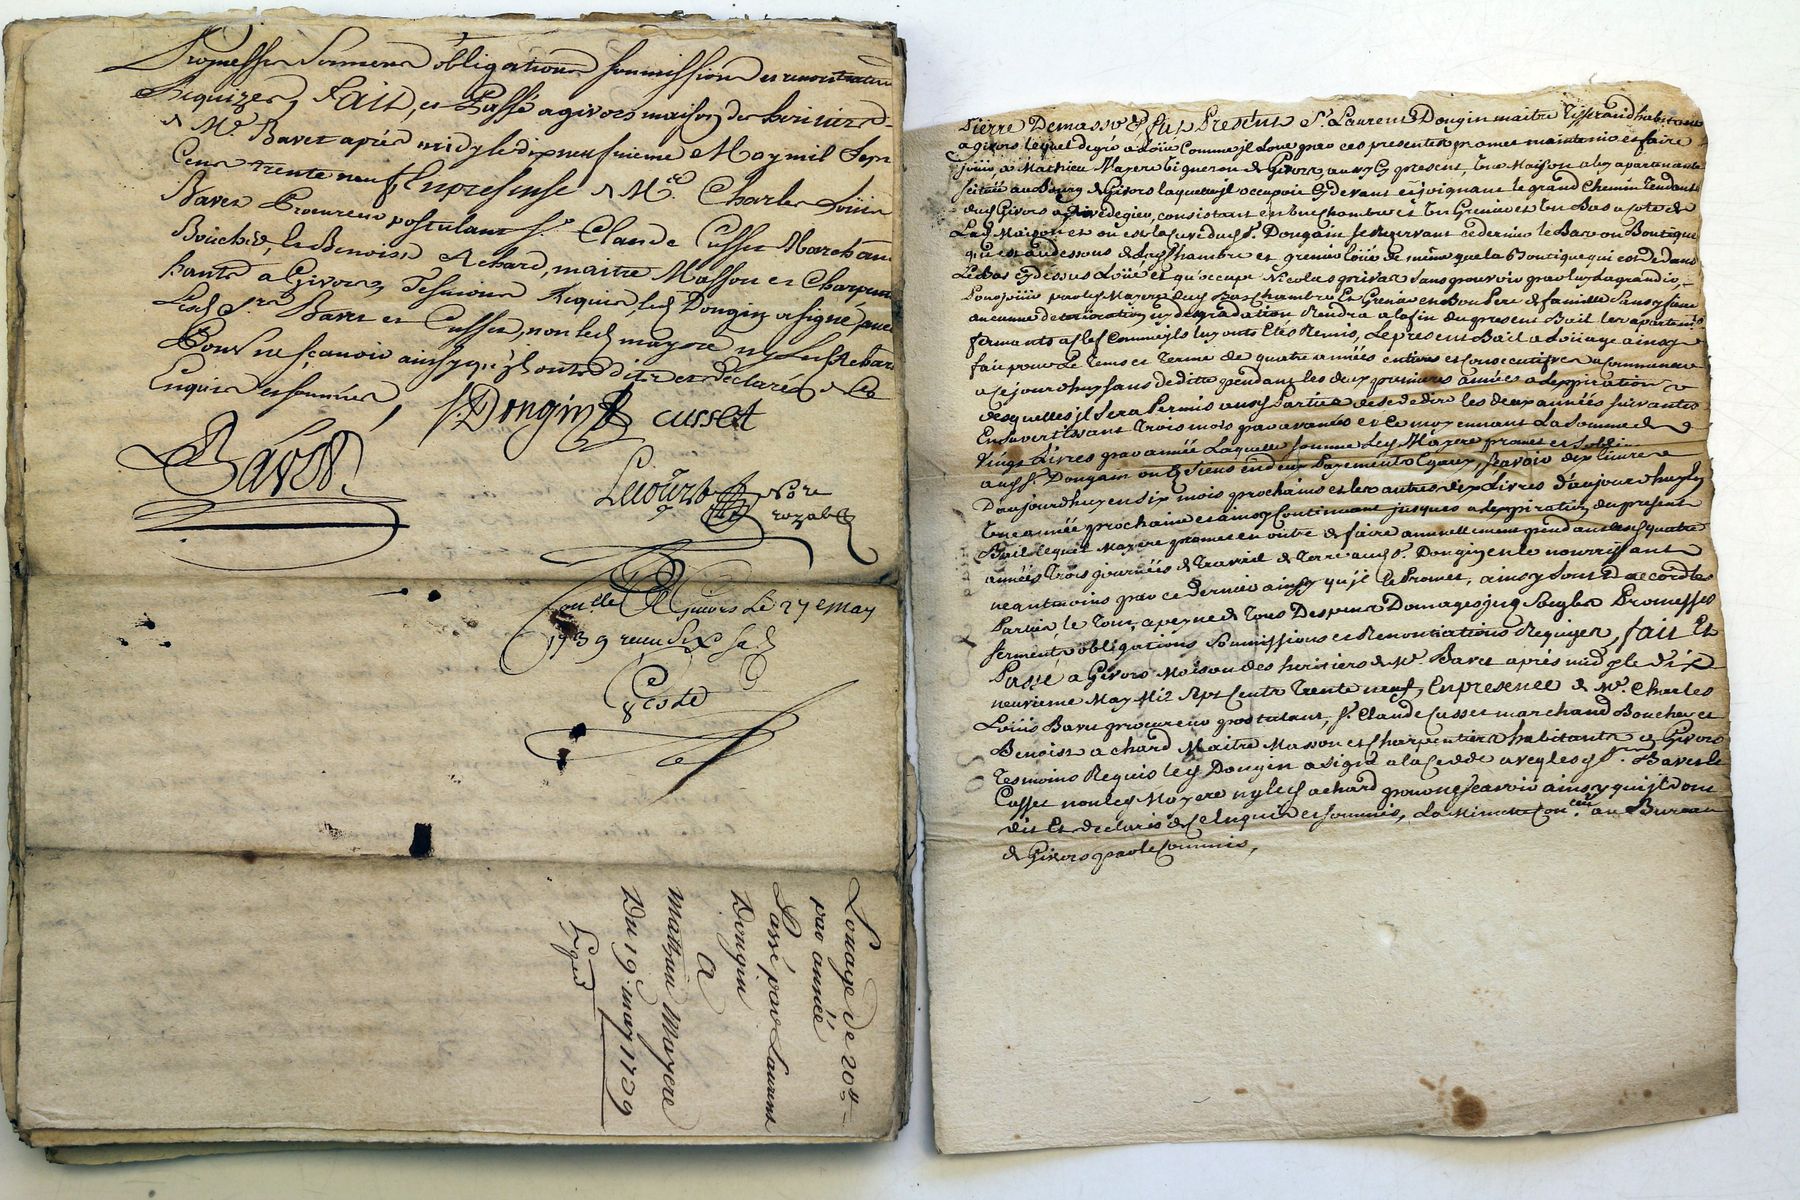 Promesses Sermens obligations soumissions et renontiations
Requizes, Fait, et Passé a givors maison des heritiers
de Me. Bavet aprés midy le dix neufvieme May mil Sept
Cent trente neuf En presense de Me. Charles Loüis
Bavet Procureur postulant Sr. Claude Cusset Marchand
Boucher, & Benoist Achard, maitre Masson et Charpentier
habitants a Givors, Tesmoins Requis, led Dongin a signé avec
Lesd Srs Bavet et Cusset, non led mayere ny led Achard
Pour ne sçavoir ainsy qu'ils ont dit et declaré de ce
Enquis et sommés
S. Dongin cusset
Bavet
Lecourt nore
royal
Conllé A Givors Le 27 May
1739 receu Six s
Coste
Louage de 20 ll
par année
Passé par Laurent
Dongin
A
Mathieu Mayere
Du 19e. may 1739
Pierre Demasso & fut Present Sr. Laurent Dongin maitre Tisserand habitant
a givors lequel de gré a Loüé Comme il Loue par ces presentes promet maintenir et faire
joüir a Mathieu Mayere Vigneron de Givors aussy present, Une Maison a luy apartenante
scitüée au Bourg de Givors laquelle il occupoit Cy devant et joignant le grand Chemin Tendant
dud Givors a Rivedegier, consistant en une Chambre et Un Grenier et Un Bas a coté de
Lad Maison et ou est la cuve dud Sr. Dongain se reservant ce dernier le Bas ou Boutique
qui est au dessous de lad Chambre et grenier loüé de même que la Boutique qui est dedans
Le bas Cy dessus Loüé et qu'occupe Nicolas privat Sans pouvoir par luy lagrandir,
Pour joüir par led Mayere dud Bas Chambre Et Grenier en Bon Pere de famille Sans y faire
aucunne deterioration ny degradation Rendra a la fin du present Bail les apartemts
fermants a clef Comme ils luy ont Etés Remis, Le present Bail a Loüage ainsy
fait pour le Tems et Terme de quatre années entiers et consecutives a Commencer
a Ce jourd'huy sans deditte pendant les deux premieres années a l'expiration
desquelles il Sera Permis aux Parties de se dedire les deux années suivantes
En avertissant Trois mois par avance et le moyennant La Somme de
Vingt Livres par année Laquelle somme Led Mayere promet et
aud Sr. Dongain ou les Siens en deux Payements Egaux, sçavoir dix livres
D'aujourd'huy en six mois prochains et les autres dix Livres d'aujourd'huy En
Une année prochaine et ainsy Continuant jusques a l'expiration du present
Bail lequel Mayere promet en outre de faire annuellement pendant lesd quatre
années Trois journées de Travail de Terre aud Sr. Dongin en le nourrissant
neantmoins par ce dernier ainsy qu'il le Promet, ainsy Sont D'accord les
Parties, le Tout a peyne de Tous Despens Domages jnts Soubs Promesses
serments obligations Soumissions et Renontiations Requizes, fait Et
Passé a Givors Maison des heritiers de Me. Bavet aprés midy le dix
neuvieme May Mil Sept Cents Trente neuf, En presence de Me. Charles
Loüis Bavet procureur postulant, Sr. Claude Cusset marchand Boucher et
Benoist achard Maitre Masson et Charpentier habitants de Givors
Tesmoins Requis led Dongin a signé a la Cedde avec lesd Srs. Bavet &
Cusset non led Mayere ny led achard pour ne sçavoir ainsy qu'ils ont
dit Et declarés de Ce Enquis et sommés, La Minutte Conllée au Bureau
de Givors par le Commis,